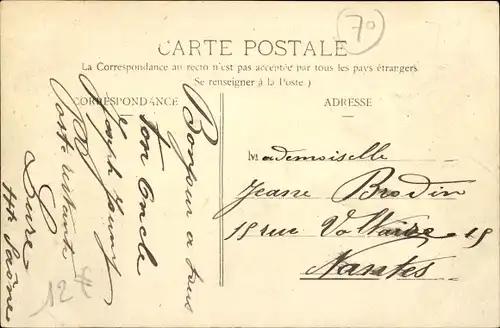 70
CARTE POSTALE
(La Correspondance au recto n'est pas acceptée par tous les pays étrangers.
Se renseigner à la Poste)
CORRESPONDANCE
ADRESSE
Bonjour a tous
ton oncle
Joseph
Poste restante
Lure
Hte Saône
12
Mademoiselle
Jeane Brodin
15 rue Voltaire 15
Nantes